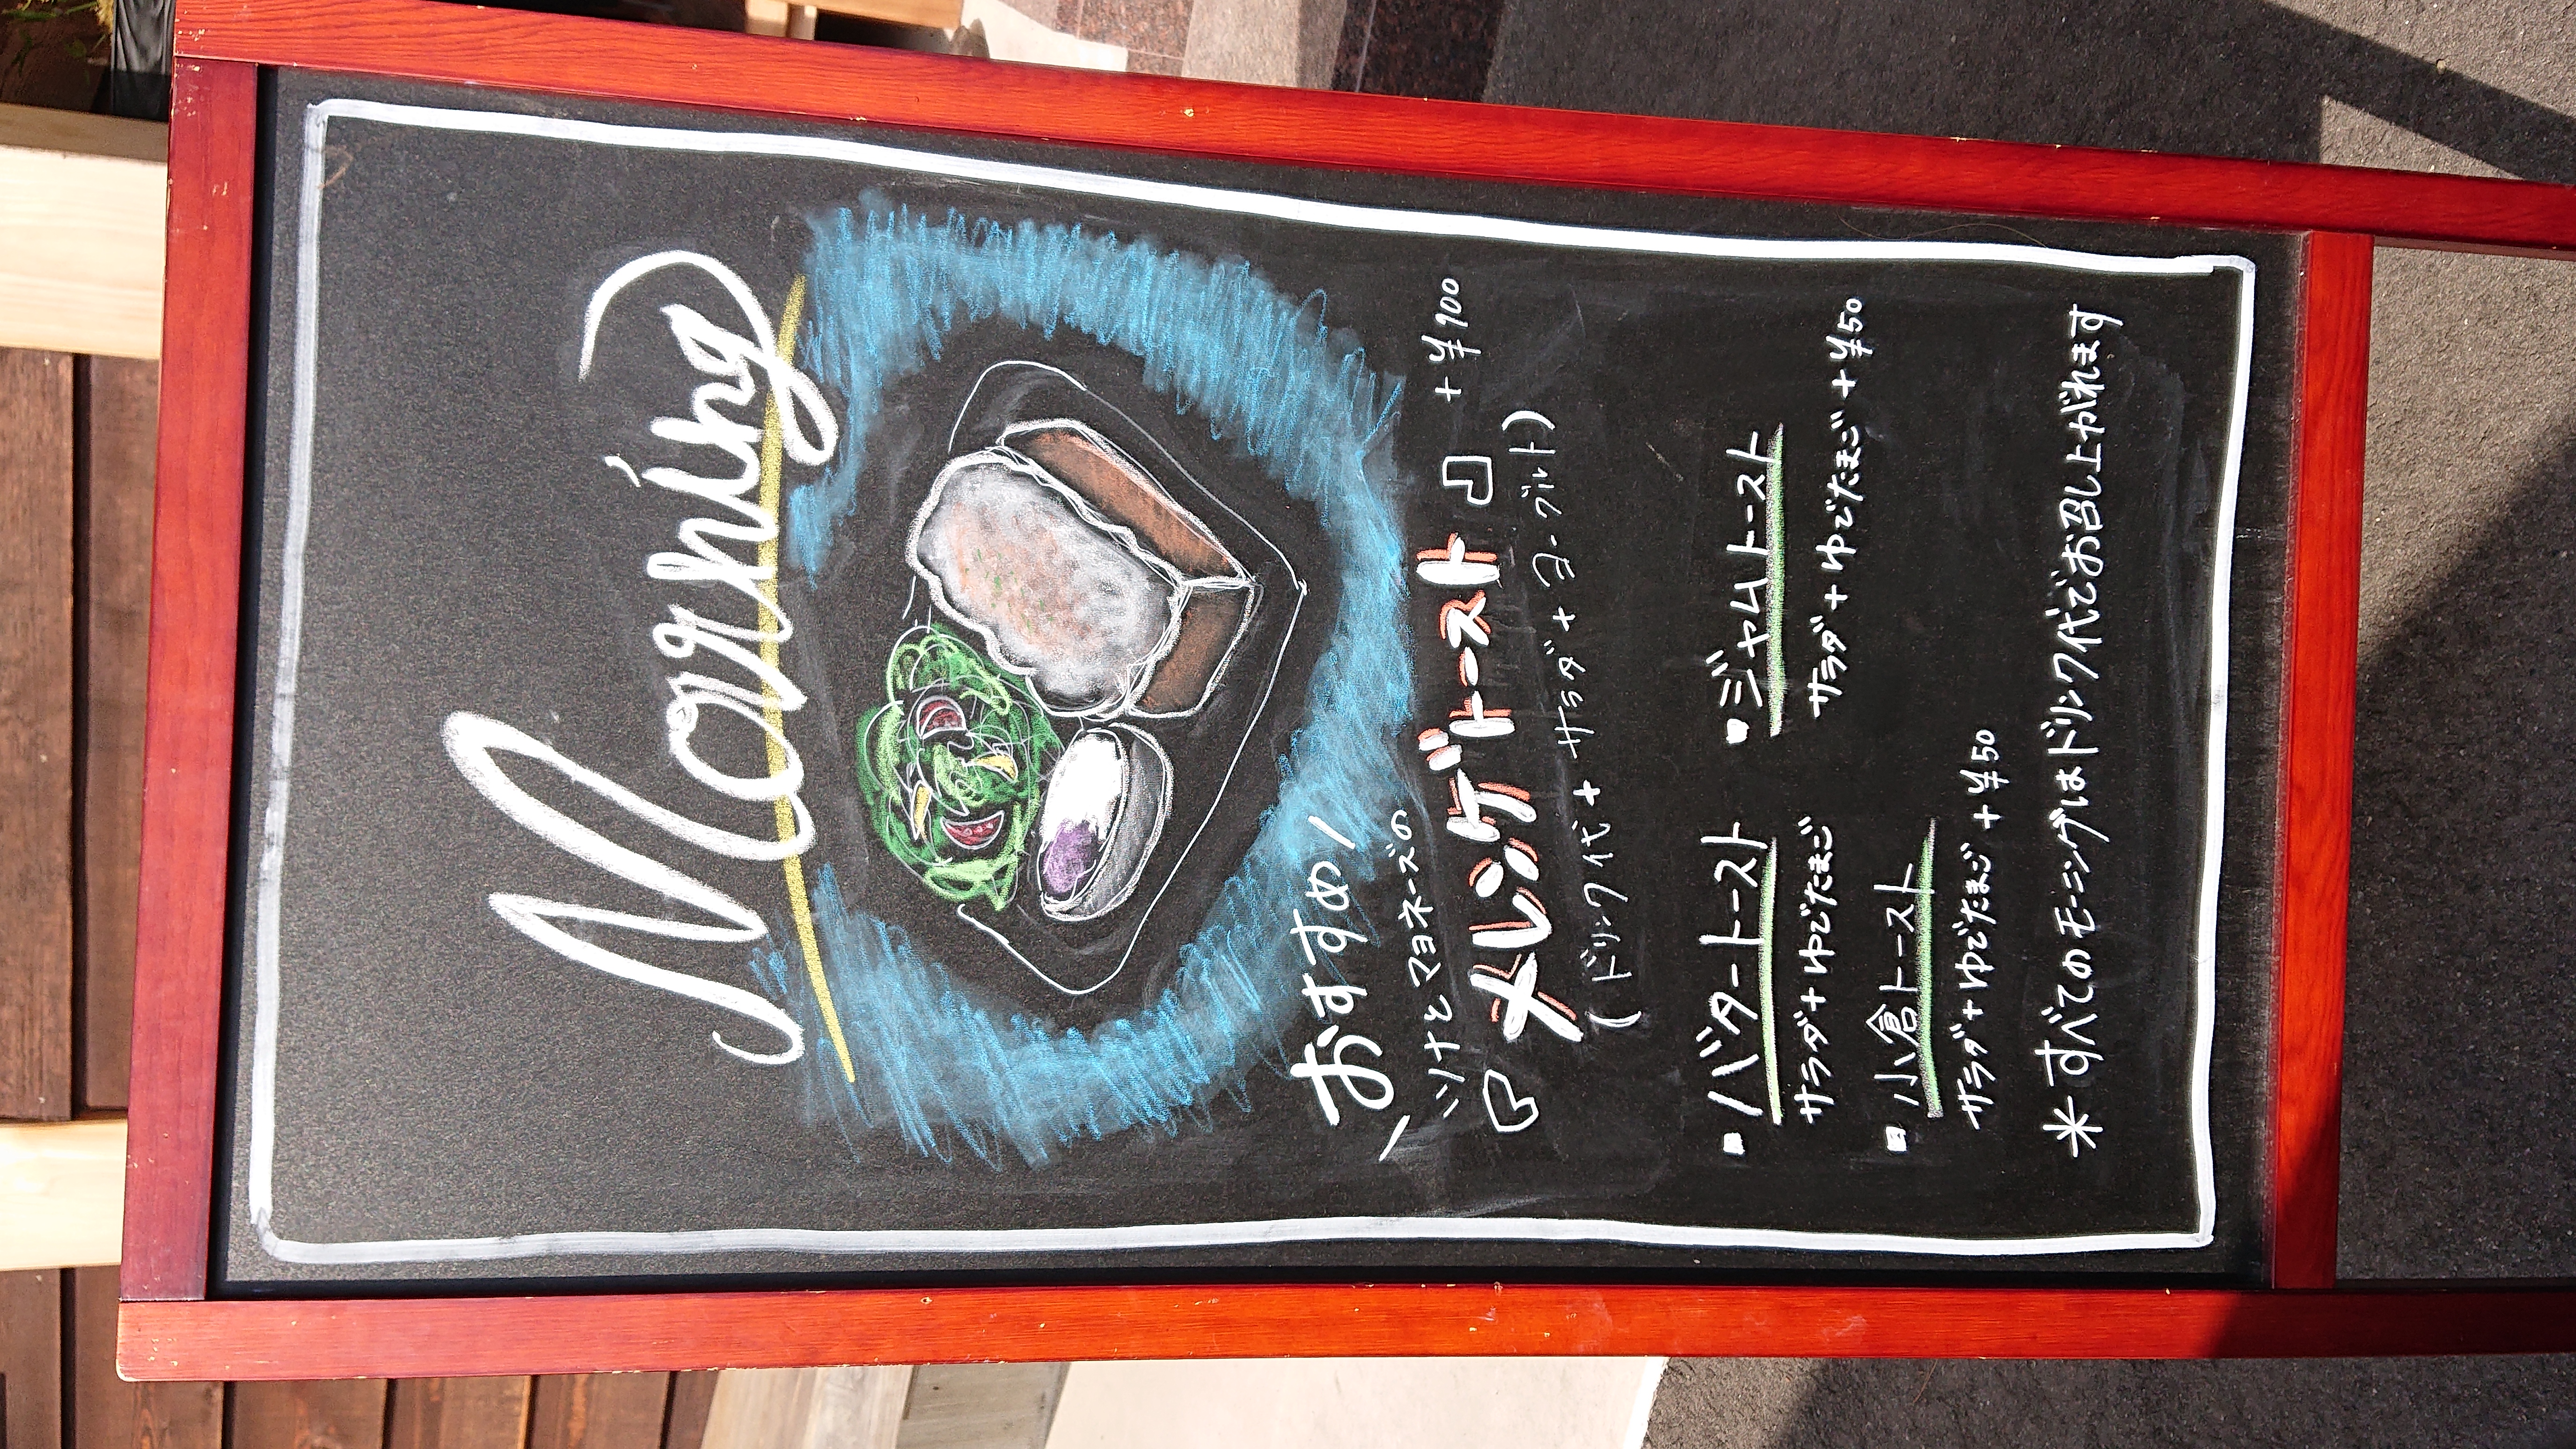 Morning
\おすすめ/
ツナとマヨネーズの
メレンゲトースト +¥100
(ドリンク代+サラダ+ヨーグルト)
バタートースト
サラダ+ゆでたまご
ジャムトースト
サラダ+ゆでたまご+¥50
小倉トースト
サラダ+ゆでたまご+¥50
*すべてのモーニングはドリンク代でお召し上がれます